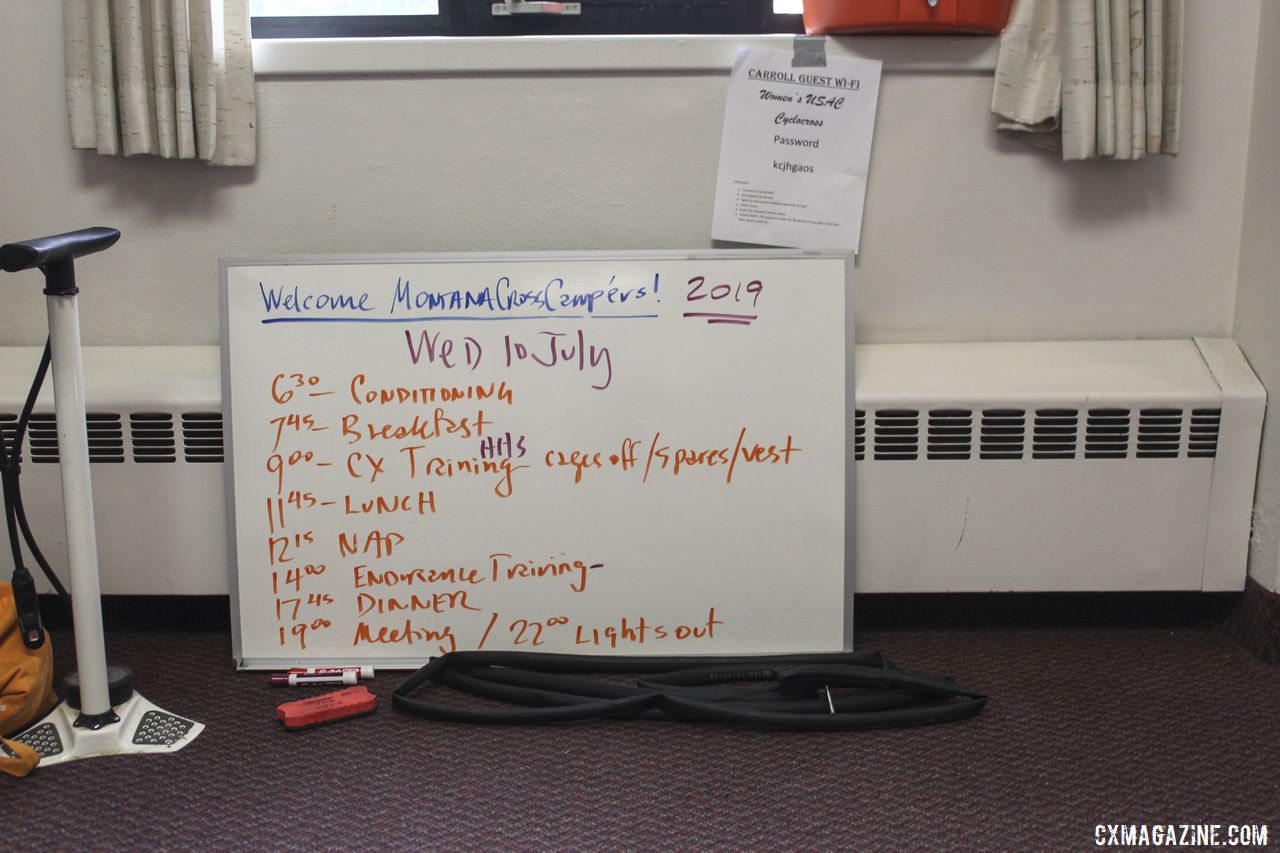 CARROLL GUEST WI-FI
Women's USAC
Cyclocross
Password
kcjhgaos
Welcome MONTANACrossCampérs! 2019
WED 10 July
6³⁰– CONDITIONING
7⁴⁵– Breakfast
9⁰⁰– CX Training HHS cages off/spares/vest
11⁴⁵– LUNCH
12¹⁵ NAP
14⁰⁰ ENDURANCE Training–
17⁴⁵ DINNER
19⁰⁰ Meeting / 22⁰⁰ Lights out
CXMAGAZINE.COM